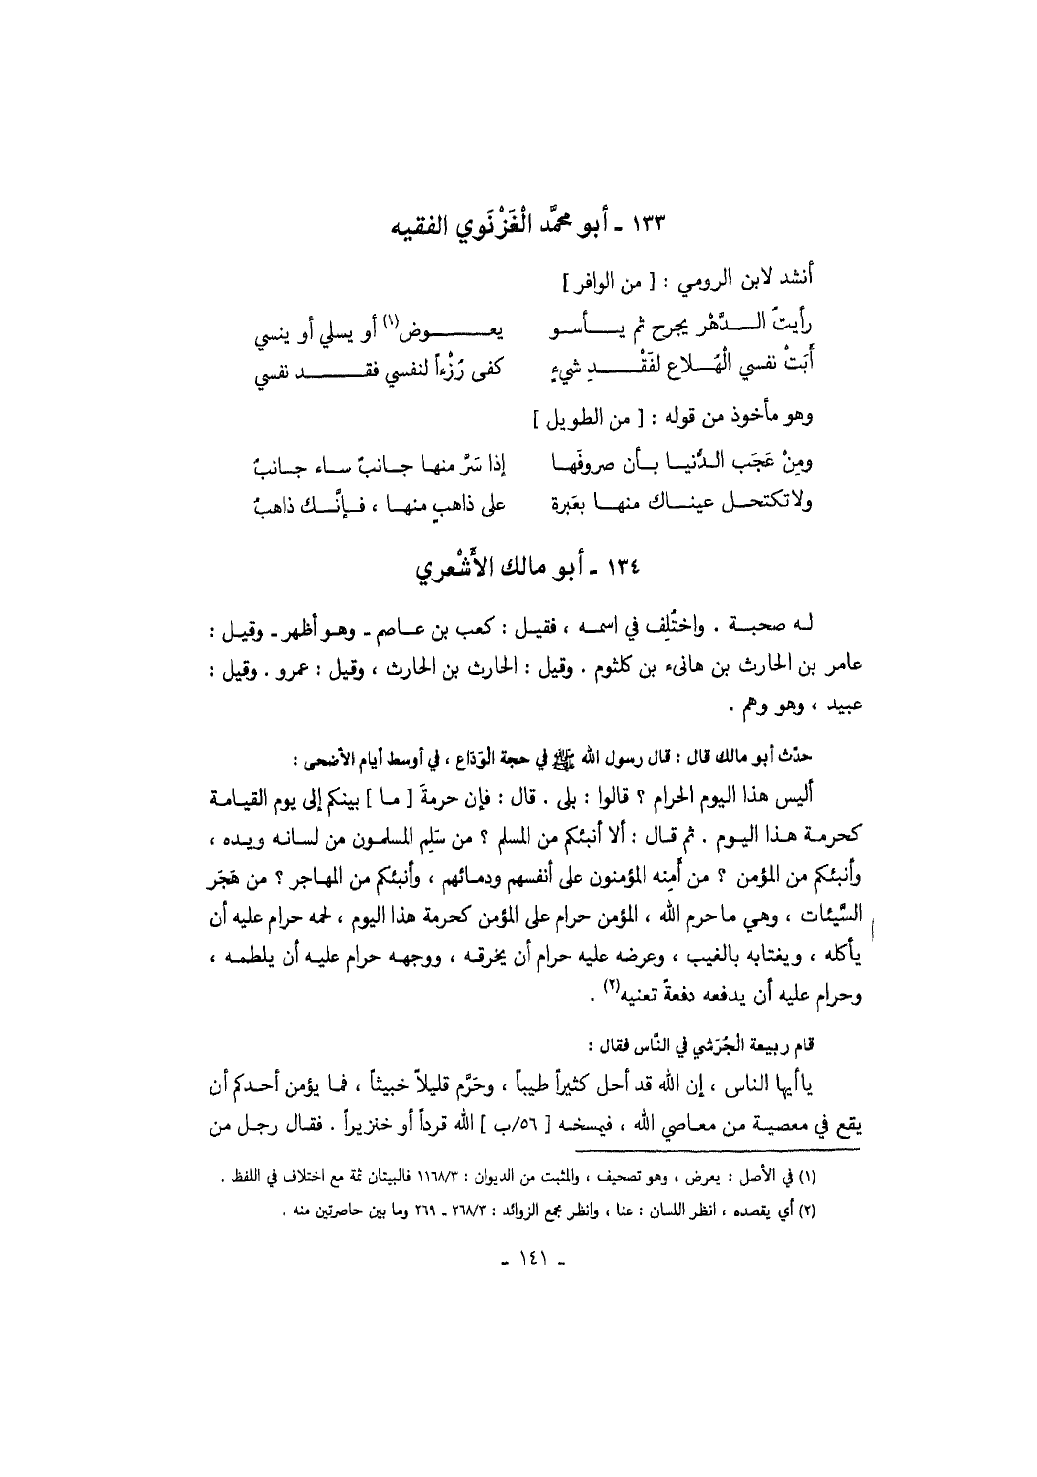 ١٣٣ ـ أبو محمَّد الْغَزْنَوي الفقيه
أنشد لابن الرومي : [ من الوافر ]
رأيتَ الـدَّهْر يجرح ثم يـأسـو يعـوض(١) أو يسلي أو ينسي
أَبَتْ نفسي الْهُـلاع لفَقْـدِ شيءٍ كفى رُزْءاً لنفسي فقـد نفسي
وهو مأخوذ من قوله : [ من الطويل ]
ومِنْ عَجَب الـدُّنيـا بـأن صروفَهـا إذا سَرَّ منهـا جـانبٌ سـاء جـانبٌ
ولا تكتحـل عينـاك منهـا بعَبرة على ذاهبٍ منهـا ، فـإنَّـك ذاهبُ
١٣٤ ـ أبو مالك الأَشْعري
لـه صحبـة . واختُلِف في اسمـه ، فقيـل : كعب بن عـاصم ـ وهـو أظهر ـ وقيـل :
عامر بن الحارث بن هانىء بن كلثوم . وقيل : الحارث بن الحارث ، وقيل : عمرو . وقيل :
عبيد ، وهو وهم .
حدّث أبو مالك قال : قال رسول الله ﷺ في حجة الْوَدَاع ، في أوسط أيام الأضحى :
أليس هذا اليوم الحرام ؟ قالوا : بلى . قال : فإن حرمةَ [ ما ] بينكم إلى يوم القيامة
كحرمـة هـذا اليـوم . ثم قـال : ألا أنبئكم من المسلم ؟ من سَلِم المسلمـون من لسـانـه ويـده ،
وأنبئكم من المؤمن ؟ من أَمِنه المؤمنون على أنفسهم ودمـائهم ، وأنبئكم من المهـاجر ؟ من هَجَر
السَّيئات ، وهي ما حرم الله ، المؤمن حرام على المؤمن كحرمة هذا اليوم ، لحمه حرام عليه أن
يأكله ، ويغتابه بالغيب ، وعرضه عليه حرام أن يخرقـه ، ووجهـه حرام عليـه أن يلطمـه ،
وحرام عليه أن يدفعه دفعةً تعنيه(٢) .
قام ربيعة الْجُرَشي في النَّاس فقال :
ياأيها الناس ، إن الله قد أحل كثيراً طيباً ، وحَرَّم قليلاً خبيثاً ، فما يؤمن أحدكم أن
يقع في معصية من معاصي الله ، فيمسخـه [ ٥٦/ب ] الله قرداً أو خنزيراً . فقـال رجـل من
(١) في الأصل : يعرض ، وهو تصحيف ، والمثبت من الديوان : ١١٦٨/٣ فالبيتان ثمة مع اختلاف في اللفظ .
(٢) أي يقصده ، انظر اللسان : عنا ، وانظر مجمع الزوائد : ٢٦٨/٣ ـ ٢٦٩ وما بين حاصرتين منه .
ـ ١٤١ ـ